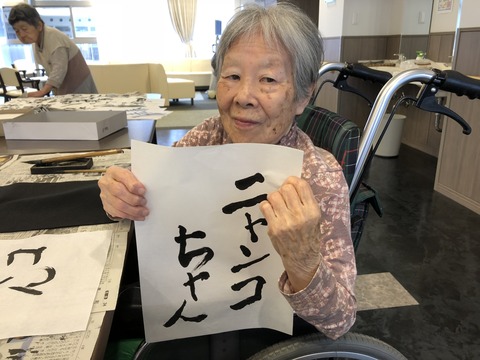 ニャンコ
ちゃん